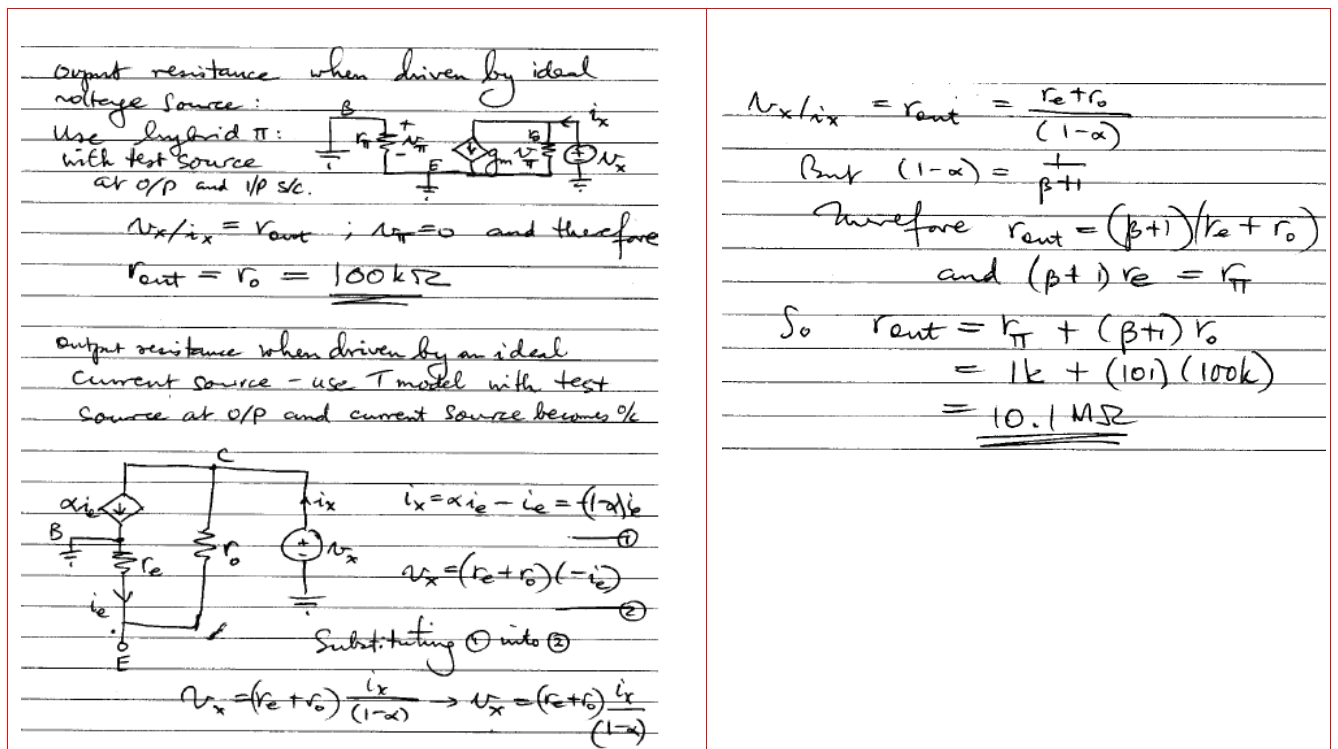 Output resistance when driven by ideal
voltage source:
Use hybrid π:
with test source
at o/p and i/p s/c.
B
rπ
+
vπ
-
E
gm vπ
ro
ix
+
-
vx
vx/ix = rout ; vπ=0 and therefore
rout = ro = 100kΩ
Output resistance when driven by an ideal
current source - use T model with test
source at o/p and current source becomes o/c
C
αie
B
re
ie
E
ro
ix
+
-
vx
ix = αie - ie = -(1-α)ie
①
vx = (re + ro)(-ie)
②
Substituting ① into ②
vx = (re + ro) ix/(1-α) → vx = (re + ro) ix/(1-α)
vx/ix = rout = re + ro/(1-α)
But (1-α) = 1/β+1
Therefore rout = (β+1)(re + ro)
and (β+1) re = rπ
So rout = rπ + (β+1) ro
= 1k + (101)(100k)
= 10.1 MΩ